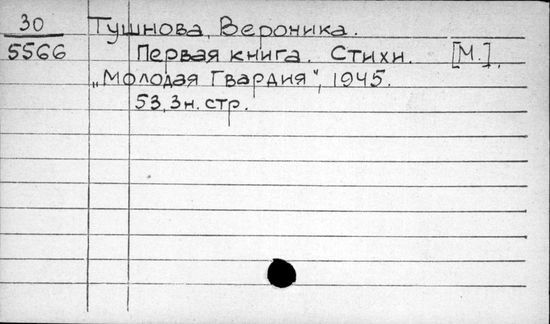 30 Тушнова, Вероника.
5566 Первая книга. Стихи. [М.],
„Молодая Гвардия", 1945.
53,3н.стр.